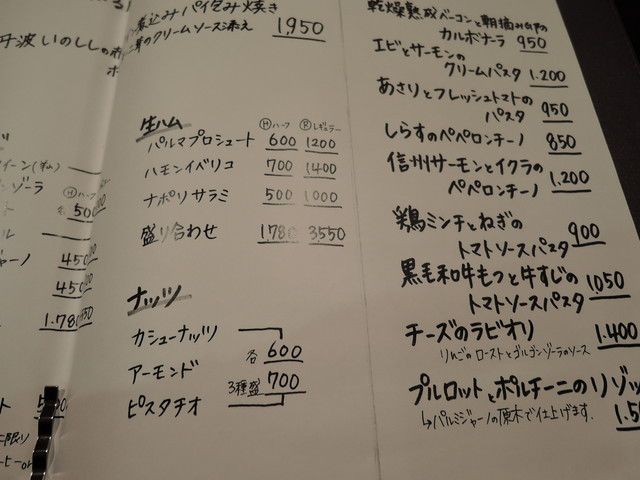 丹波いのししの
煮込みパイ包み焼き
茸のクリームソース添え 1,950
生ハム Ⓗハーフ Ⓡレギュラー
パルマプロシュート 600 1200
ハモンイベリコ 700 1400
ナポリサラミ 500 1000
盛り合わせ 1,780 3,550
ナッツ
カシューナッツ
各 600
アーモンド
3種盛 700
ピスタチオ
Ⓗハーフ
450
450
1.780
乾燥熟成ベーコンと朝摘み卵の
カルボナーラ 950
エビとサーモンの
クリームパスタ 1.200
あさりとフレッシュトマトの
パスタ 950
しらすのペペロンチーノ 850
信州サーモンとイクラの
ペペロンチーノ 1.200
鶏ミンチとねぎの
トマトソースパスタ 900
黒毛和牛もつと牛すじの
トマトソースパスタ 1,050
チーズのラビオリ 1.400
りんごのローストとゴルゴンゾーラのソース
プルロットとポルチーニのリゾッ
↳パルミジャーノの原木で仕上げます. 1.5